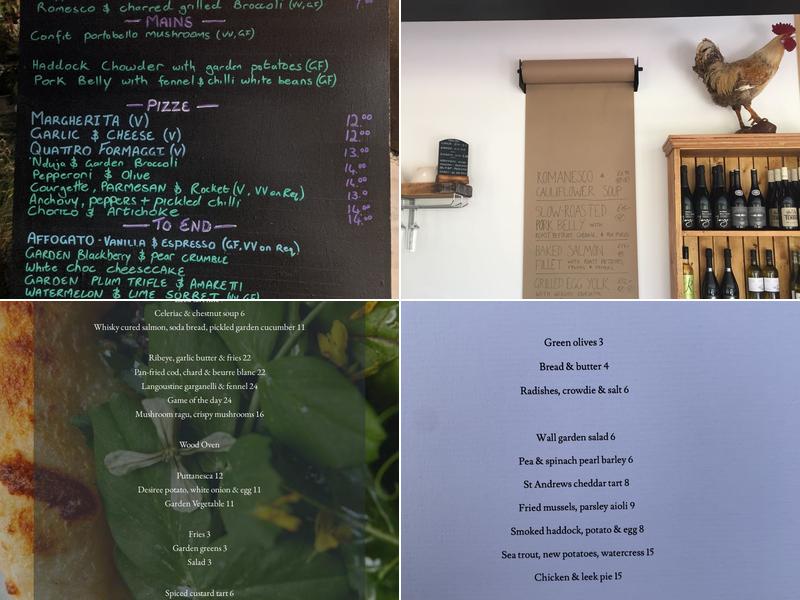 Romesco & charred grilled Broccoli (VV,GF)
MAINS
Confit portobello mushrooms (VV,GF)
Haddock Chowder with garden potatoes (GF)
Pork Belly with fennel & chilli white beans (GF)
PIZZE
MARGHERITA (V) 12.00
GARLIC & CHEESE (V) 12.00
QUATTRO FORMAGGI (V) 13.00
'Nduja & Garden Broccoli 14.00
Pepperoni & Olive 14.00
Courgette, PARMESAN & Rocket (V, VV on Req) 13.0
Anchovy, peppers + pickled chilli 14.00
Chorizo & Artichoke 14.00
TO END
AFFOGATO - VANILLA & ESPRESSO (GF, VV on Req)
GARDEN Blackberry & Pear CRUMBLE
White choc cheesecake
GARDEN PLUM TRIFLE & AMARETTI
WATERMELON & LIME SORBET (VV,GF)
ROMANESCO &
CAULIFLOWER SOUP
SLOW-ROASTED
PORK BELLY WITH
BAKED SALMON
FILLET WITH ROAST POTATOES,
GRILLED EGG YOLK
Celeriac & chestnut soup 6
Whisky cured salmon, soda bread, pickled garden cucumber 11
Ribeye, garlic butter & fries 22
Pan-fried cod, chard & beurre blanc 22
Langoustine garganelli & fennel 24
Game of the day 24
Mushroom ragu, crispy mushrooms 16
Wood Oven
Puttanesca 12
Desiree potato, white onion & egg 11
Garden Vegetable 11
Fries 3
Garden greens 3
Salad 3
Spiced custard tart 6
Green olives 3
Bread & butter 4
Radishes, crowdie & salt 6
Wall garden salad 6
Pea & spinach pearl barley 6
St Andrews cheddar tart 8
Fried mussels, parsley aioli 9
Smoked haddock, potato & egg 8
Sea trout, new potatoes, watercress 15
Chicken & leek pie 15